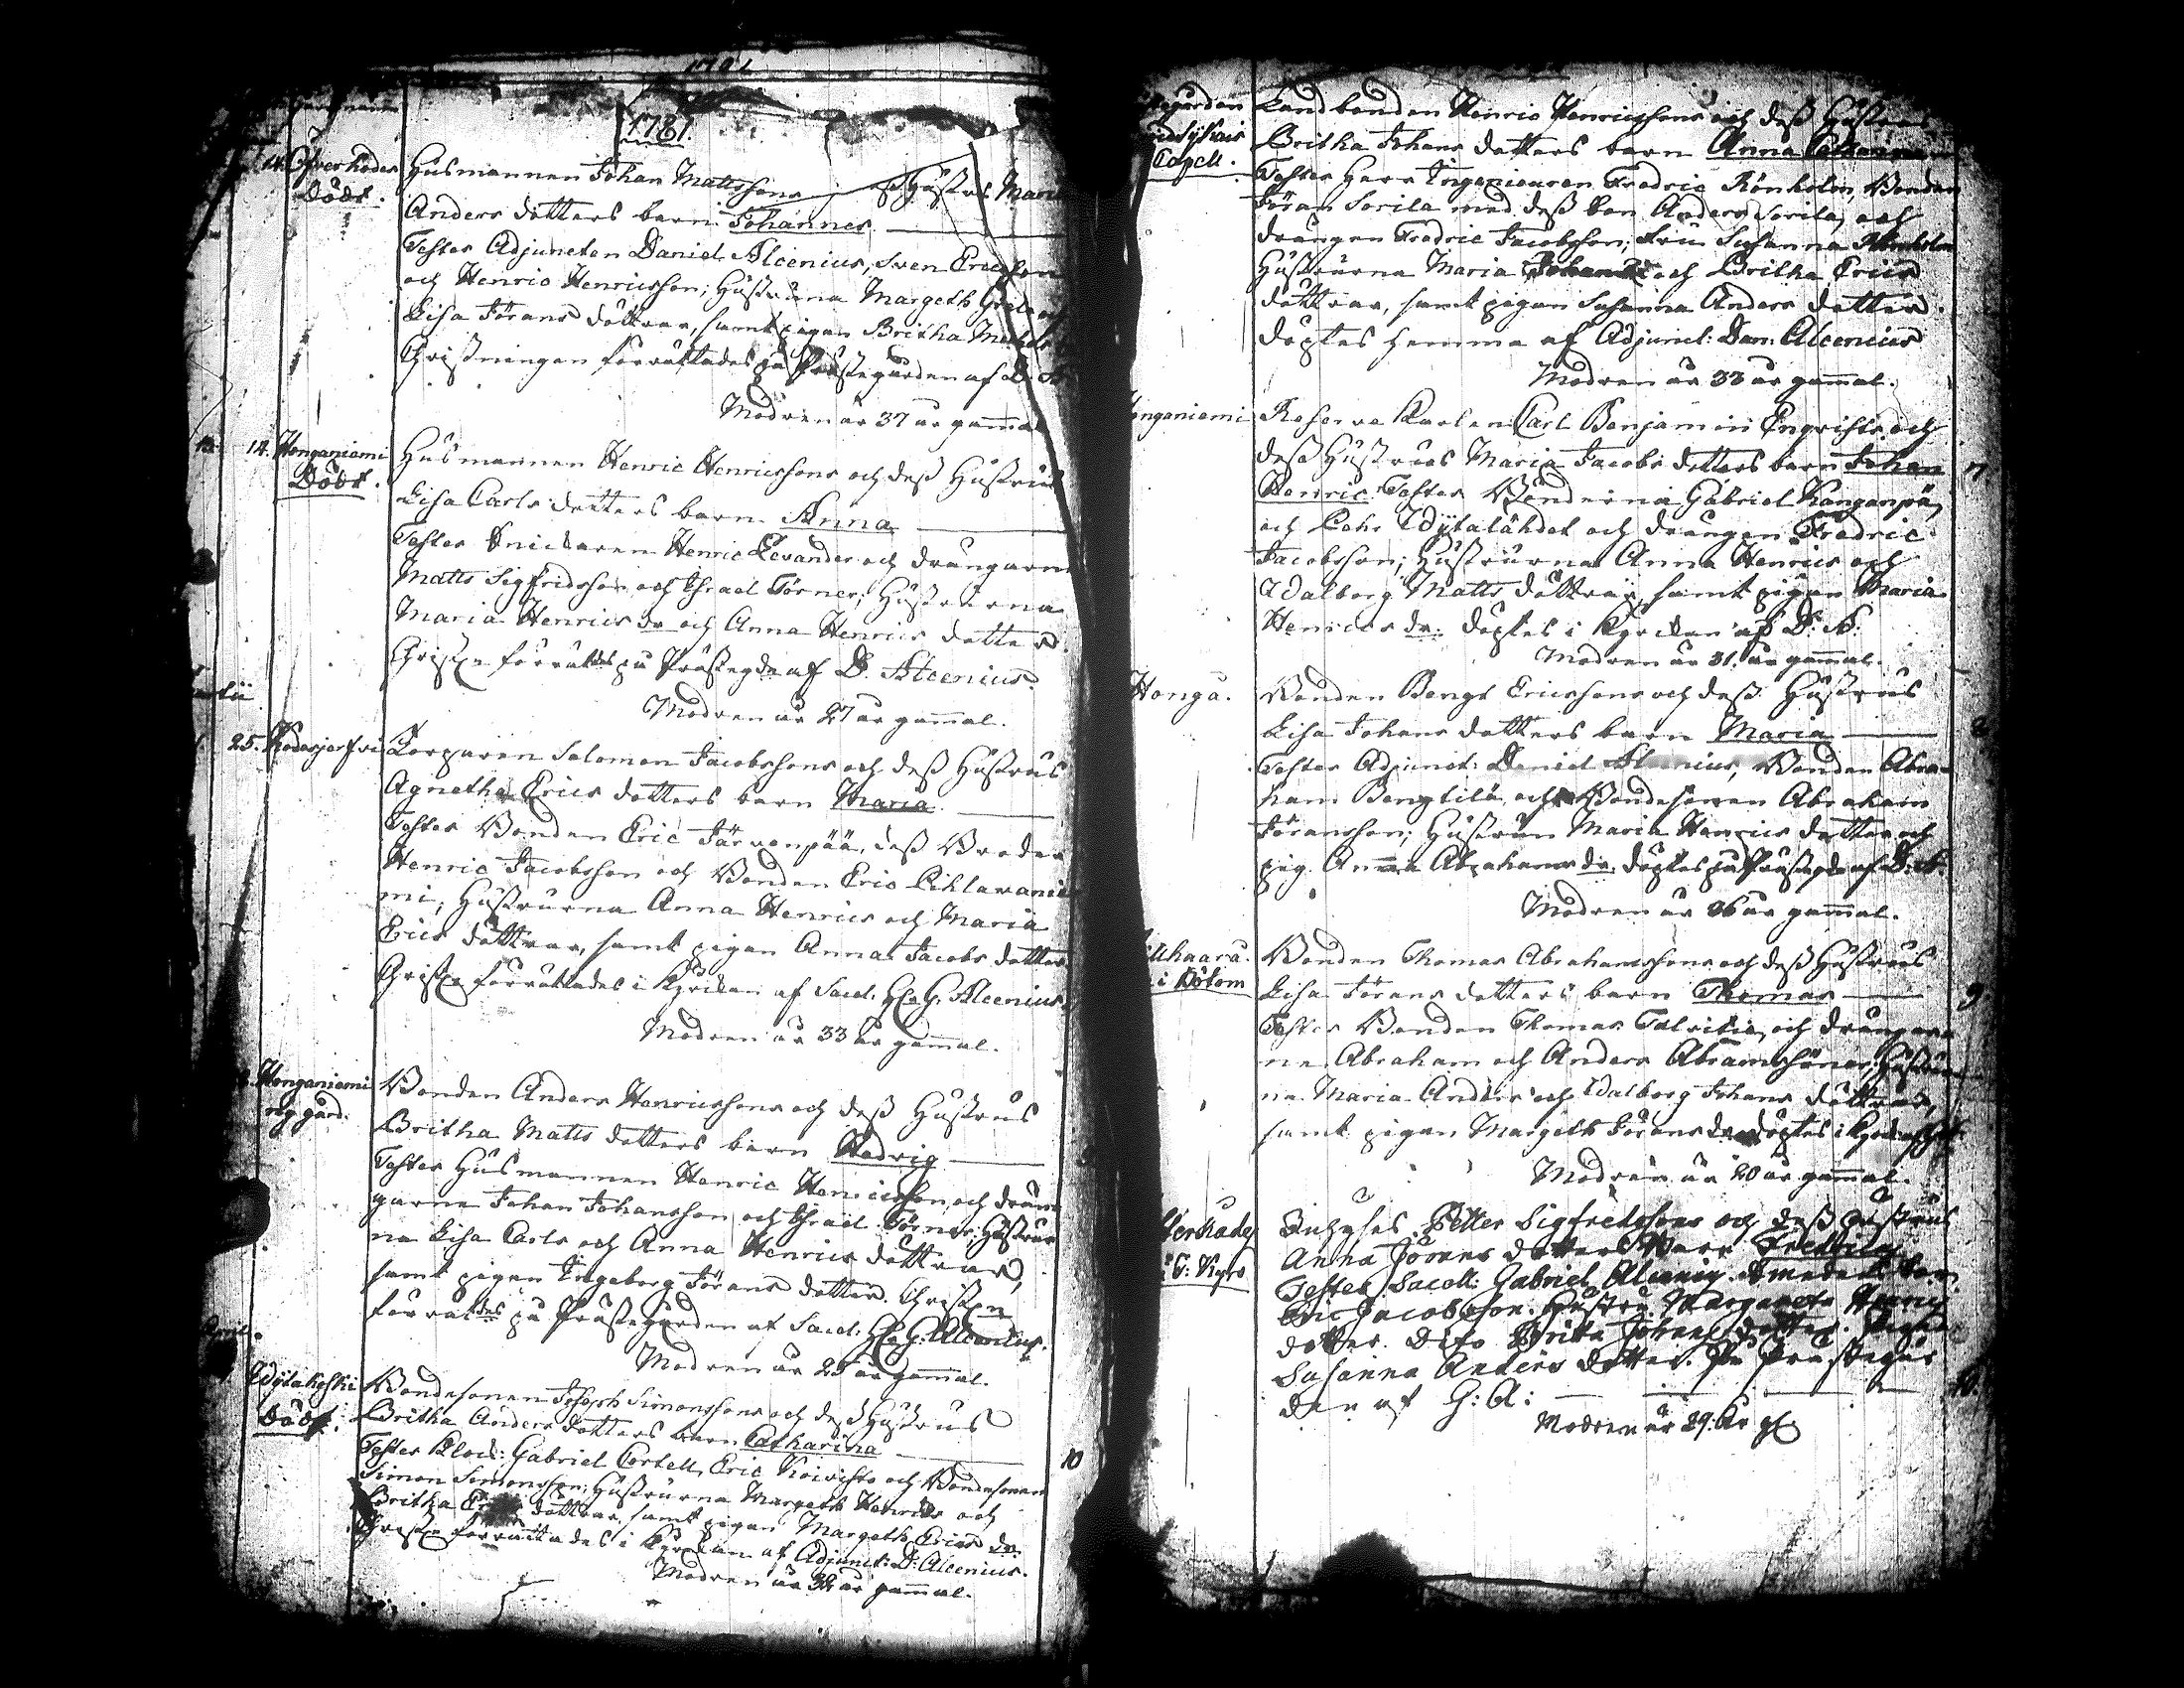 1781.
14. Öfverkades
Död.
Husmannen Johan Mattssons och Hustrus Maria
Anders dotters barn Johannes
Testes Adjuncten Daniel Alcenius, Sven Ericsson
och Henric Henricsson; Hustruna Margeth Greels och
Lisa Jörans döttrar, samt pigan Britha Matts
Christningen förrättades på Prästegården af D. A.
Modren är 37 år gammal
14. Honganiemi
Död.
Husmannen Henric Henricssons och dess Hustrus
Lisa Carls dotters barn Anna
Testes Snickaren Henric Levander och drängarne
Matts Sigfridsson och Israel Törner; Hustrurna
Maria Henrics dr och Anna Henrics dotter
Christn förrättdes på Prästegdn af D. Alcenius.
Modren är 27 år gammal.
25. Kodesjerfvi
Torparen Salomon Jacobssons och dess Hustrus
Agnetha Erics dotters barn Maria
Testes Bonden Eric Järvenpää, dess Broder
Henric Jacobsson och Bonden Eric Pihlavanie
mi; Hustrurna Anna Henrics och Maria
Erics döttrar, samt pigan Anna Jacobs dotter
Christn förrättades i Kyrckan af Sacell. G. Alcenius
Modren är 33 år gammal.
Honganiemi
ny gård.
Bonden Anders Henricssons och dess Hustrus
Britha Matts dotters barn Hedvig
Testes Husmannen Henric Henricsson, och drän
garne Johan Johansson och Israel Törner; Hustrur
na Lisa Carls och Anna Henrics döttrar,
samt pigan Ingeborg Jörans dotter. Christn
förrättdes på Prästegården af Sacell. G. Alcenius.
Modren är 25 år gammal.
Wytakoski
Död.
Bondesonen Joseph Simonssons och dess Hustrus
Britha Anders dotters barn Catharina
Testes Klock: Gabriel Cortell, Eric Koivisto och Bondesonen
Simon Simonsson; Hustrurna Margeth Henrics och
Britha Erics döttrar, samt pigan Margeth Erics dr.
Christn förrättades i Kyrckan af Adjunct: D: Alcenius.
Modren är 32 år gammal.
10
gården
Capell.
Landbonden Henric Henricssons och dess Hustrus
Britha Johans dotters barn Anna Catharina
Testes Herr Ingenieuren Fredric Rönholm, Bonden
Jöran Sorila med dess Son Anders Sorila, och
drängen Fredric Jacobsson; Fru Susanna Rönholm
Hustrurna Maria Johans och Britha Erics
döttrar, samt pigan Susanna Anders dotter.
döptes hemma af Adjunct: Dan: Alcenius
Modren är 33 år gammal.
Honganiemi
Reserve Karlen Carl Benjamin Engvists och
dess Hustrus Maria Jacobs dotters barn Johan 7
Henric Testes Bönderna Gabriel Kanganpä,
och Pehr Wytalähdet och drängen Fredric
Jacobsson; Hustrurna Anna Henrics och
Walborg Matts döttrar, samt pigan Maria
Henrics dr. döptes i Kyrckan af D: A:
Modren är 31 år gammal.
Honga.
Bonden Bengt Ericssons och dess Hustrus
Lisa Johans dotters barn Maria 8
Testes Adjunct: Daniel Alcenius, Bonden Abra-
ham Bengtilä och Bondesonen Abraham
Jöransson; Hustrun Maria Henrics dotter och
pig. Anna Abrahams dr. döptes på Prästegdn af D: A:
Modren är 36 år gammal.
i Bötom
Bonden Thomas Abrahamssons och dess Hustrus
Lisa Jörans dotters barn Thomas 9
Testes Bonden Thomas Talvitie, och drängar
ne Abraham och Anders Abramssöner; Hustrur
na Maria Anders och Walborg Johans döttrar,
samt pigan Margeth Jörans dr döptes i Kyrck
Modren är 20 år gammal.
Öfverkades
Petter Sigfredssons och dess Hustrus
Anna Jörans dotters Barn Fredrica
Testes: Sacell: Gabriel Alcenius.
Eric Jacobsson. Hustru Margareta Henrics
dotter. Dito Britta Johans dotter. Pigan
Susanna Anders dotter. På Prästegår
den af G: A: 10.
Modren är 29. år gl